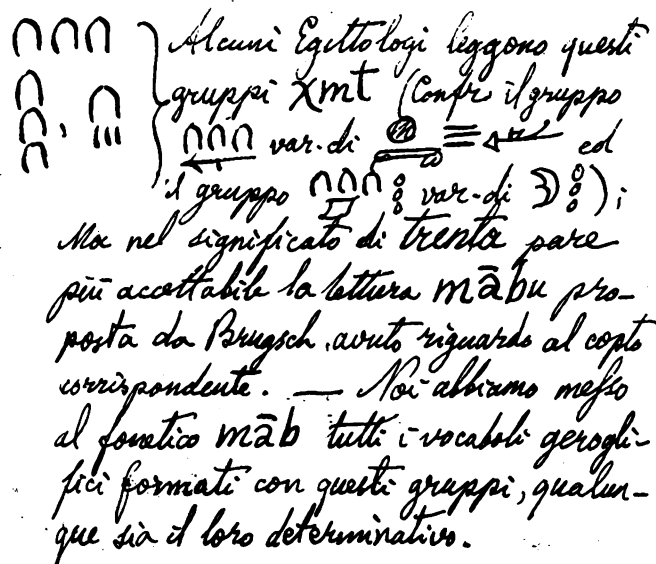 𓎆𓎆𓎆 Alcuni Egittologi leggono questi
gruppi χmt (Confr il gruppo
𓎆𓎆𓎆 var. di 𓐍 ed
il gruppo 𓎆𓎆𓎆 var. di );
Ma nel significato di trenta pare
più accettabile la lettura mābu pro-
posta da Brugsch, avuto riguardo al copto
corrispondente. — Noi abbiamo messo
al fonetico māb tutti i vocaboli gerogli-
fici formati con questi gruppi, qualun-
que sia il loro determinativo.